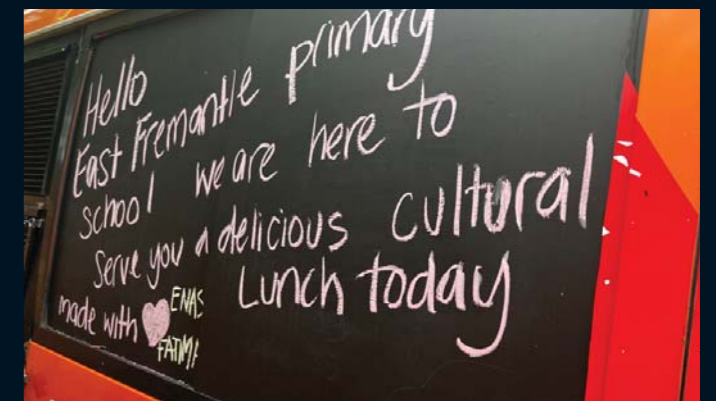 Hello
East Fremantle primary
school we are here to
Serve you a delicious cultural
Lunch today
made with ♥ ENAS
FATIMA